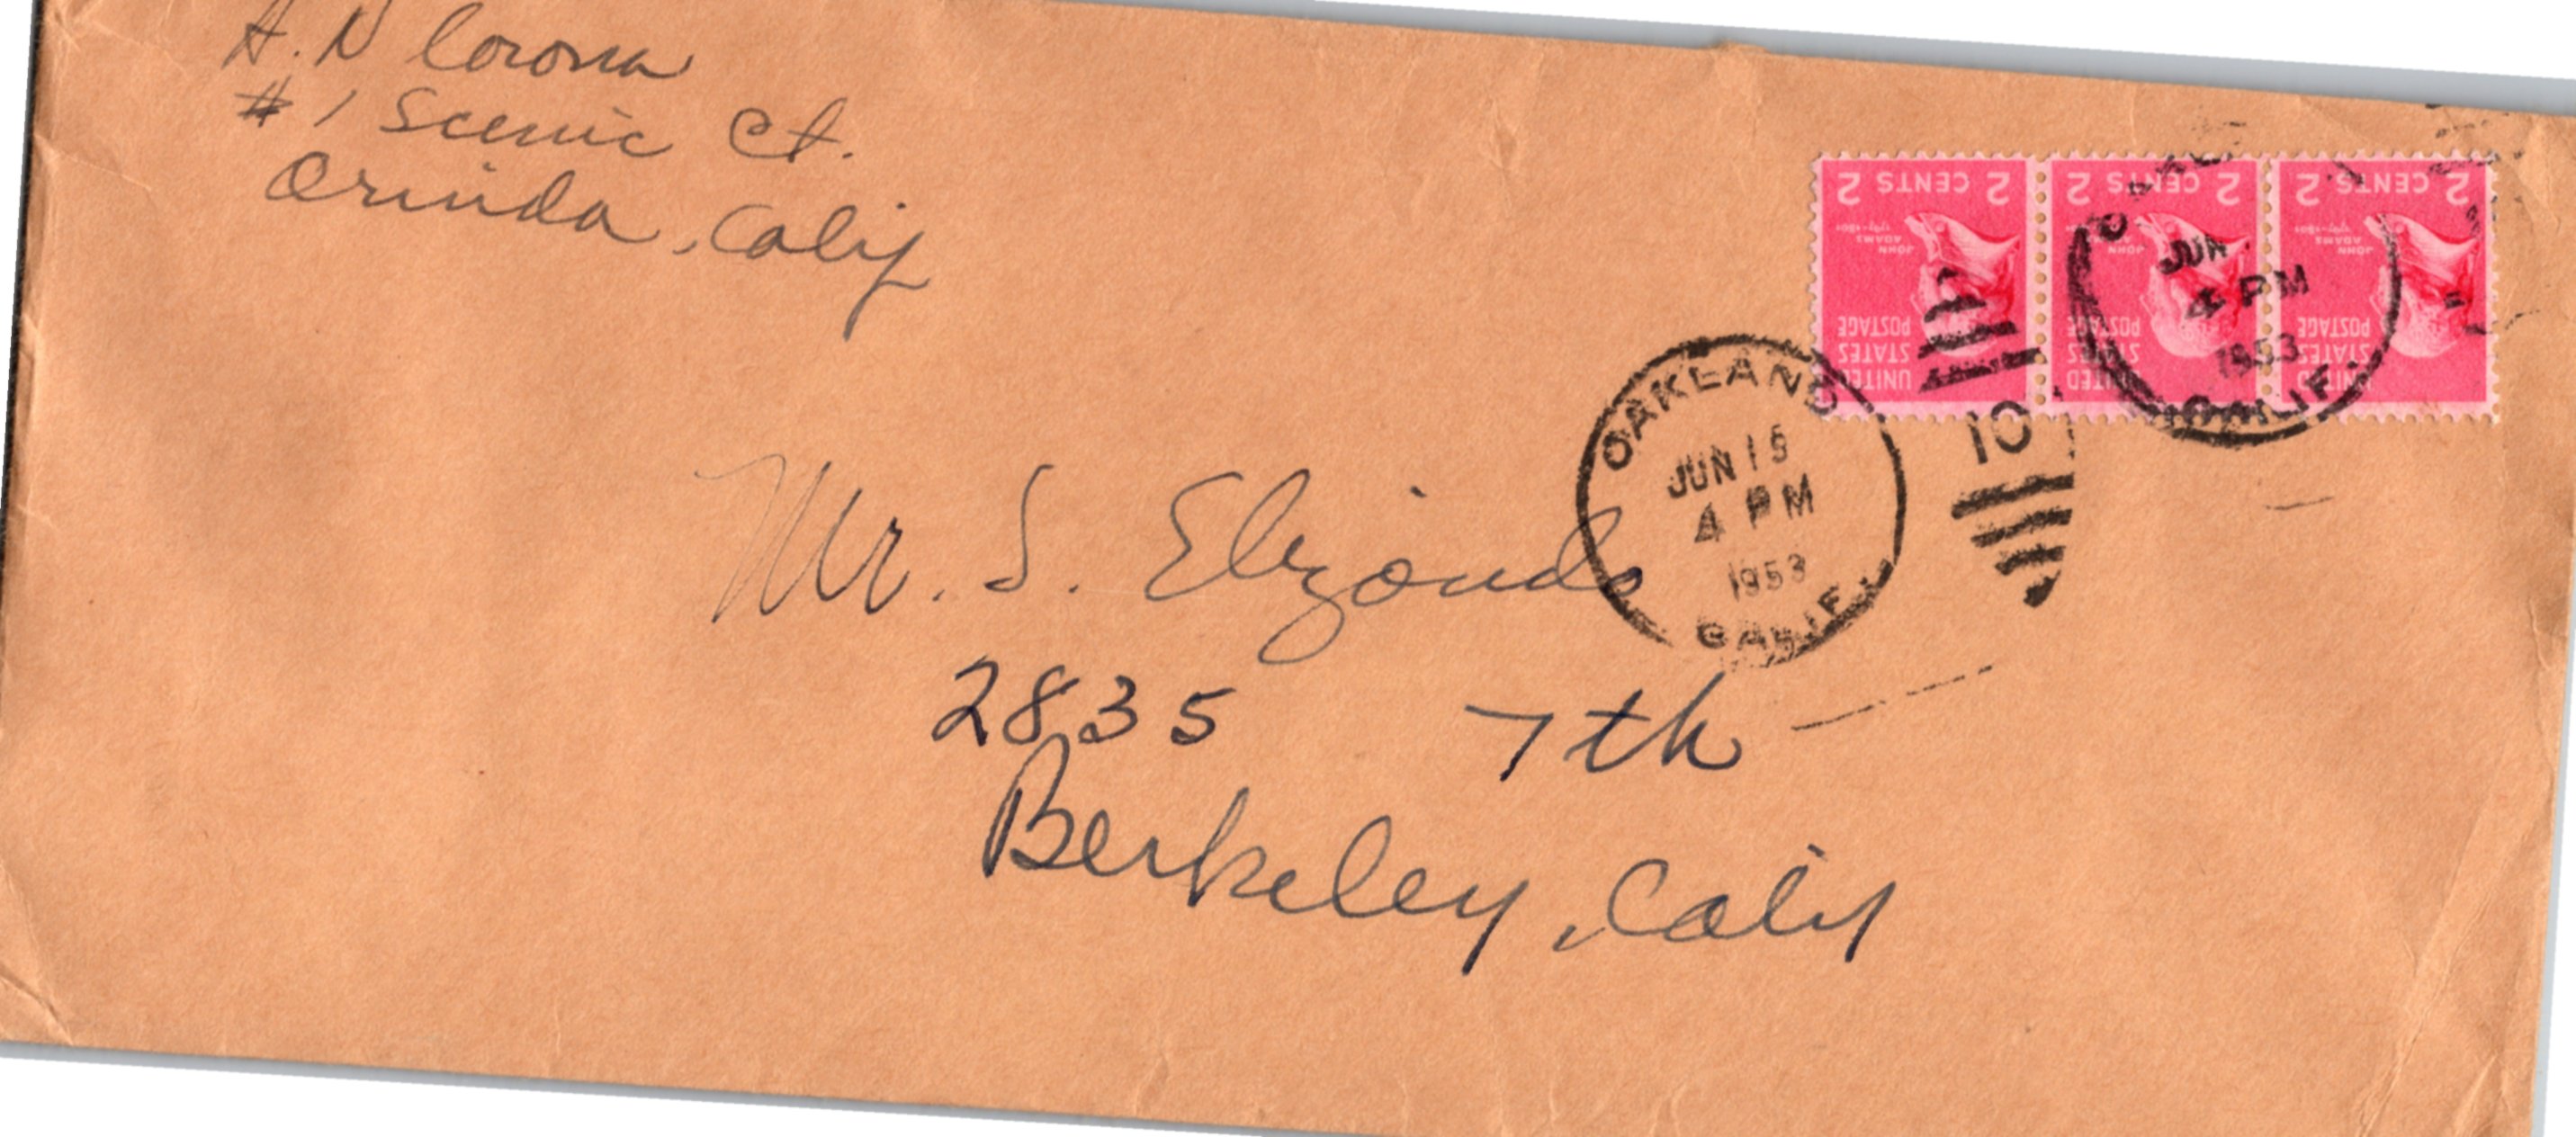 A. N Corona
# 1 Scenic Ct.
Orinda, Calif
2 CENTS 2
JOHN ADAMS
1797-1801
UNITED STATES POSTAGE
2 CENTS 2
JOHN
UNITED STATES POSTAGE
2 CENTS 2
JOHN ADAMS
1797-1801
UNITED STATES POSTAGE
JUN
4 PM
1953
CALIF.
OAKLAND
JUN 15
4 PM
1953
CALIF.
10
Mr. S. Elizondo
2835 7th
Berkeley, Calif